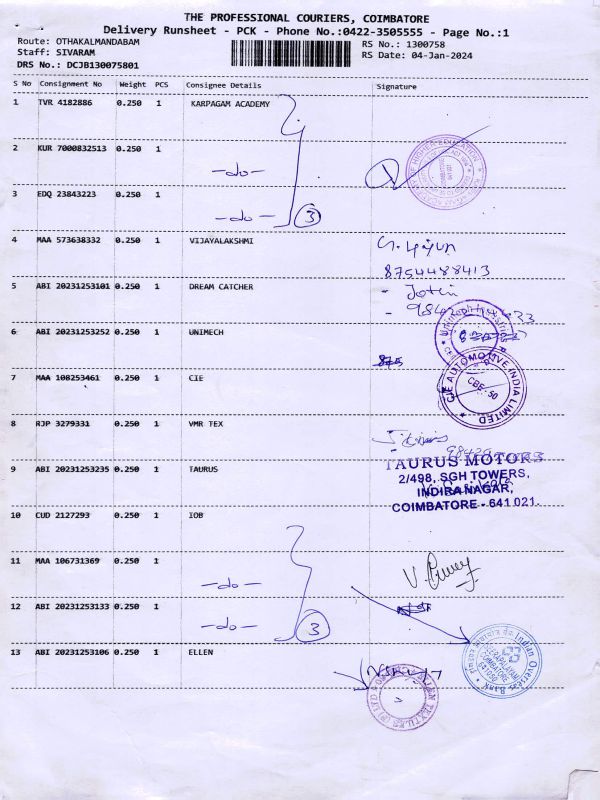 THE PROFESSIONAL COURIERS, COIMBATORE
Delivery Runsheet - PCK - Phone No.:0422-3505555 - Page No.:1
Route: OTHAKALMANDABAM
Staff: SIVARAM
DRS No.: DCJB130075801
RS No.: 1300758
RS Date: 04-Jan-2024
S No Consignment No Weight PCS Consignee Details Signature
1 TVR 4182886 0.250 1 KARPAGAM ACADEMY
2 KUR 7000832513 0.250 1 -do-
3 EDQ 23843223 0.250 1 -do- 3
4 MAA 573638332 0.250 1 VIJAYALAKSHMI
8754488413
5 ABI 20231253101 0.250 1 DREAM CATCHER
6 ABI 20231253252 0.250 1 UNIMECH
7 MAA 108253461 0.250 1 CIE
CIE AUTOMOTIVE INDIA LIMITED
CBE-50
8 RJP 3279331 0.250 1 VMR TEX
9 ABI 20231253235 0.250 1 TAURUS
TAURUS MOTORS
2/498, SGH TOWERS,
INDIRA NAGAR,
COIMBATORE - 641 021.
10 CUD 2127293 0.250 1 IOB
11 MAA 106731369 0.250 1 -do-
12 ABI 20231253133 0.250 1 -do- 3
13 ABI 20231253106 0.250 1 ELLEN
Indian Overseas Bank